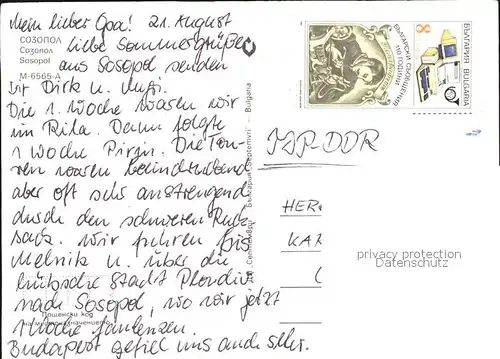 Mein lieber Opa! 21. August
СОЗОПОЛ
Созопол
Sosopol
М-6565-А
liebe Sommergrüße
aus Sosopol senden
Dir Dirk u.
Die 1. Woche waren wir
im Rila. Dann folgte
1 Woche Pirin. Die Tou-
ren waren beeindruckend
aber oft sehr anstrengend
durch den schweren Ruck-
sack. Wir fuhren bis
Melnik u. über die
hübsche Stadt Plovdiv
nach Sosopol, wo wir jetzt
1 Woche faulenzen.
Budapest gefiel uns auch sehr.
Пощенски код
на местоназначението
ДП „Септември" България Septemvri - Bulgaria
БЪЛГАРСКИ СЪОБЩЕНИЯ
110 ГОДИНИ
БЪЛГАРИЯ BULGARIA
8
DDR
HER
KAR
privacy protection
Datenschutz